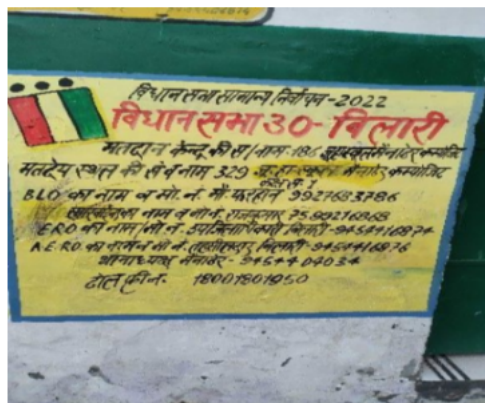 विधान सभा सामान्य निर्वाचन-2022
विधान सभा 30-बिलारी
मतदान केन्द्र की सं/नाम-186
मतदेय स्थल की सं व नाम 329
BLO का नाम व मो. नं. मौ. फरहान 9927683786
का नाम व मो.नं. राजकुमार 7589216868
E.R.O का नाम/मो.नं. उपजिलाधिकारी बिलारी-9454416874
A.E.R.O का नाम व मो. नं. तहसीलदार बिलारी-9454416876
थानाध्यक्ष मैनाठेर-9454404034
टोल फ्री नं- 18001801950